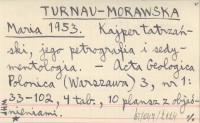 TURNAU-MORAWSKA
Maria 1953. Kajper tatrzań-
ski, jego petrografia i sedy-
mentologia. - Acta Geologica
Polonica (Warszawa) 3, nr 1:
33-102, 4 tab., 10 plansz z objaś-
nieniami.